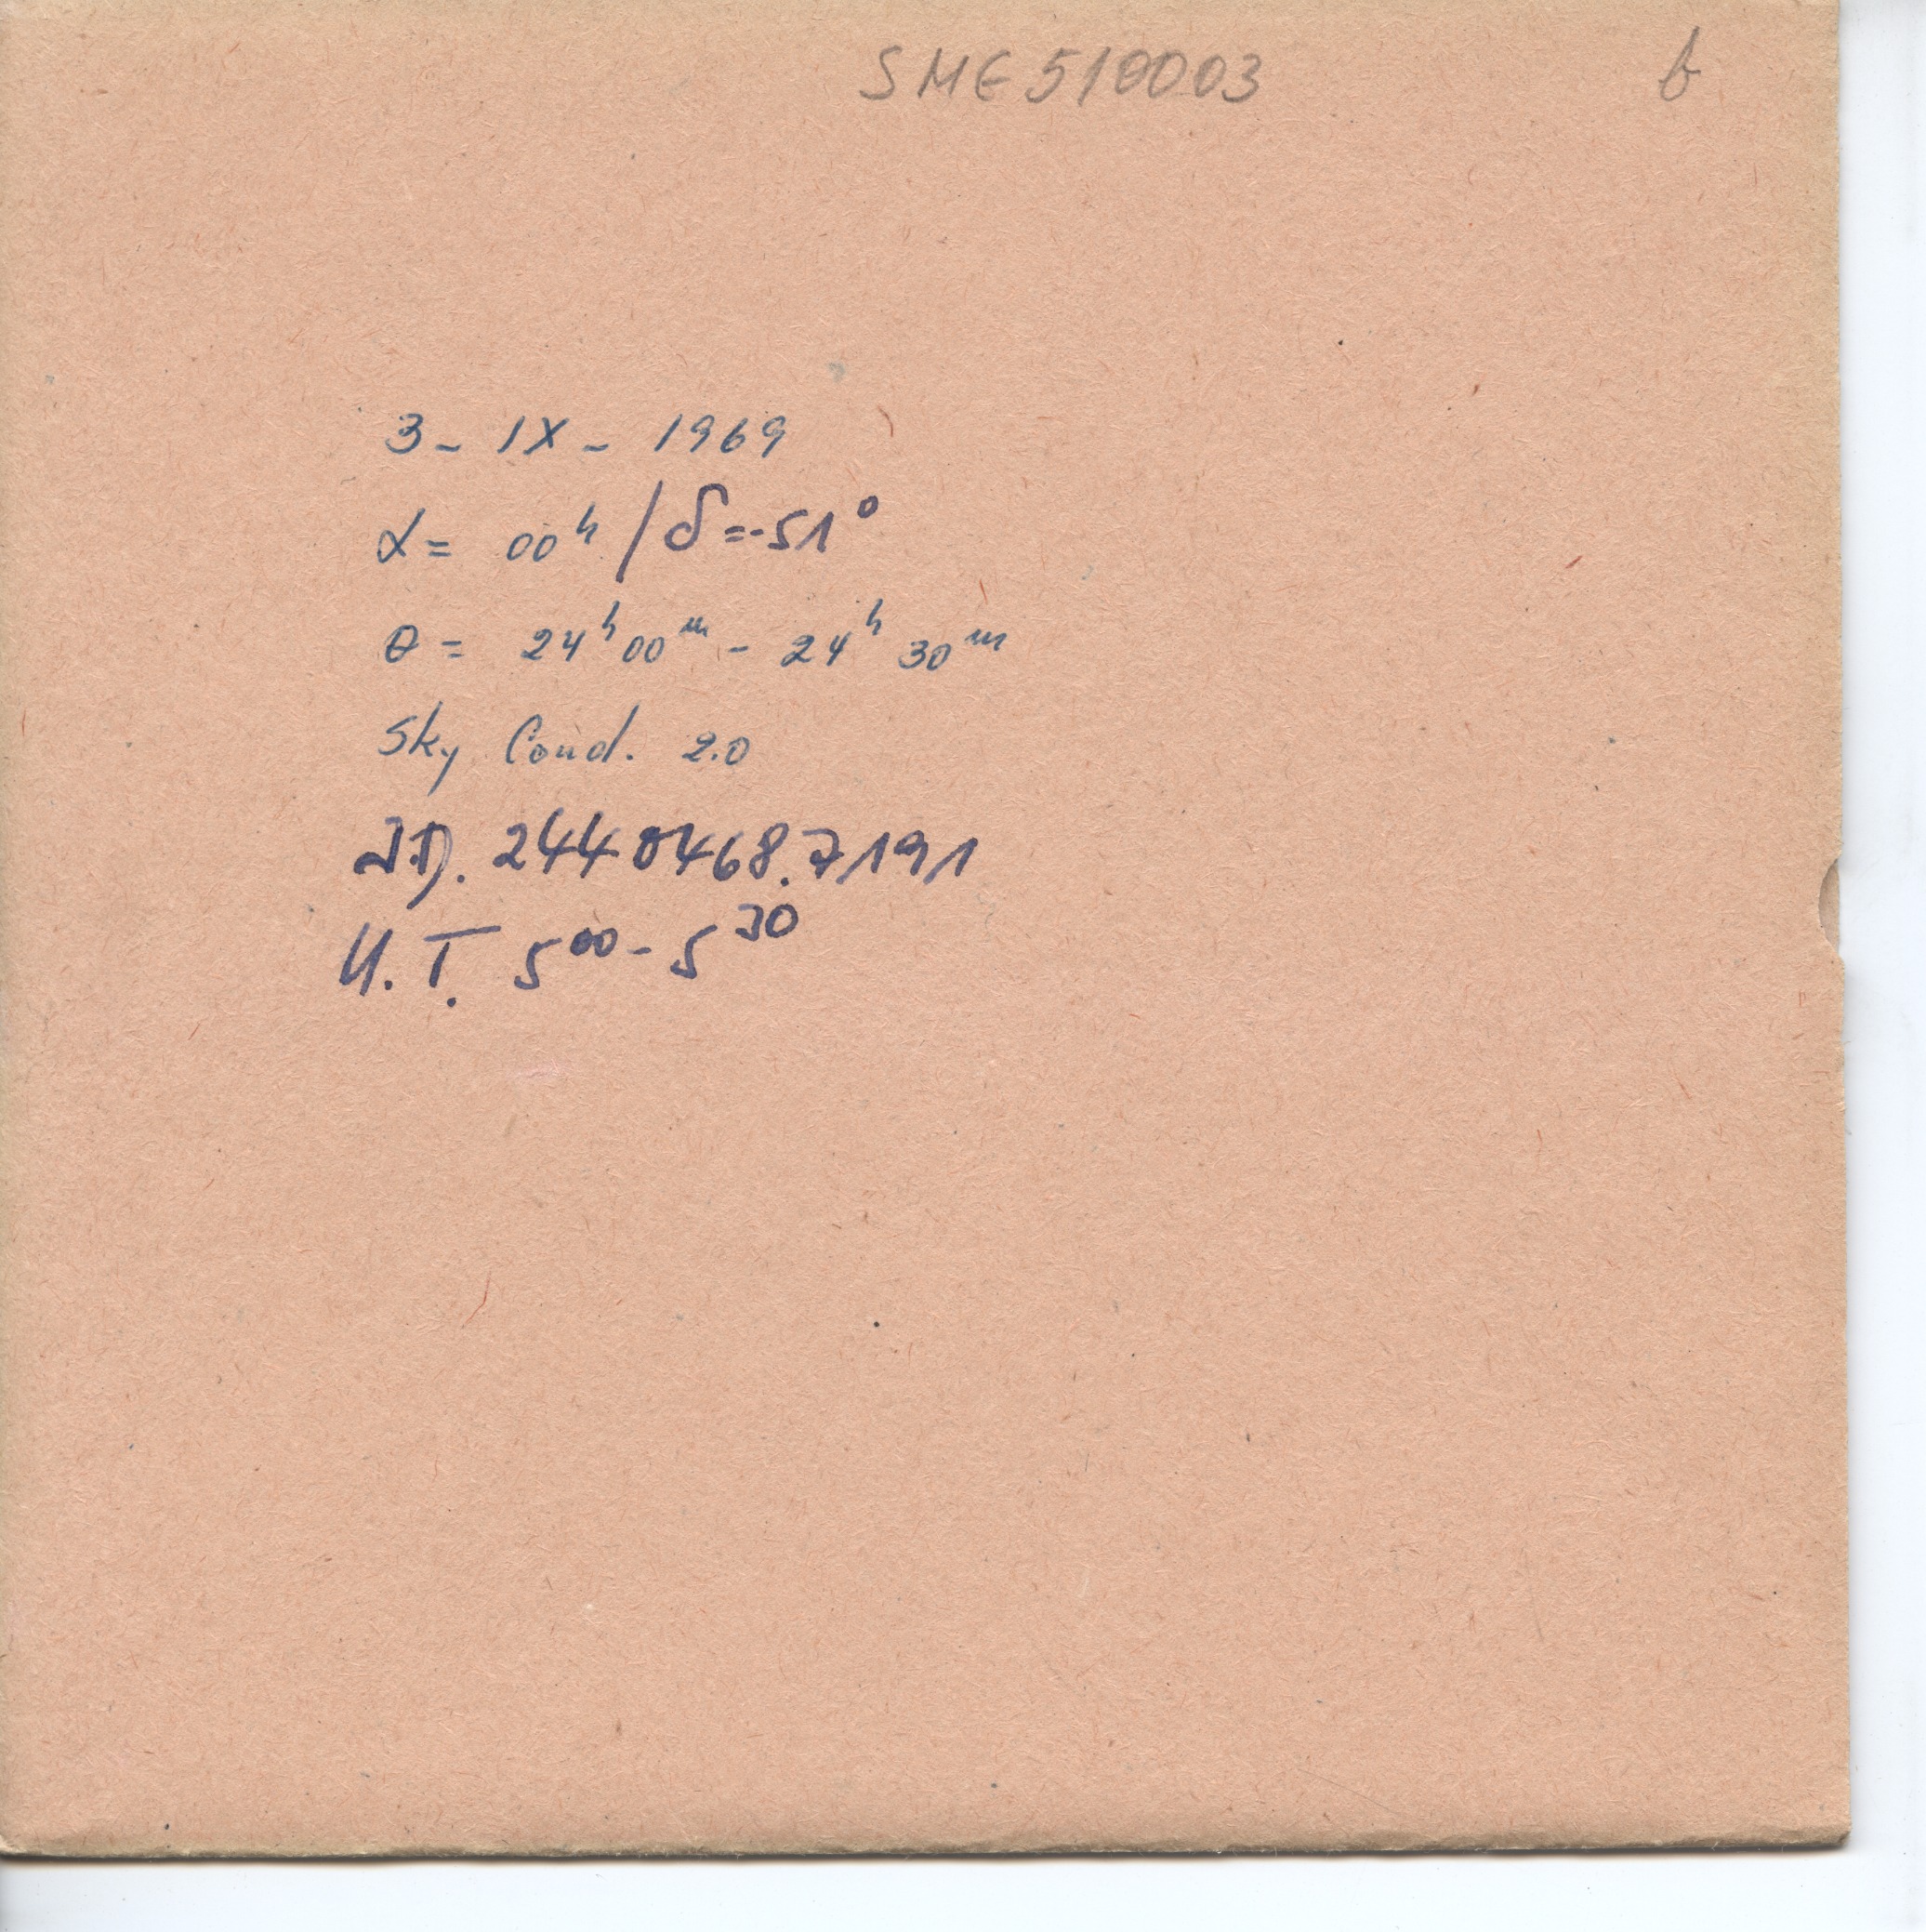 SME510003 b
3 - IX - 1969
α = 00ʰ / δ = -51°
θ = 24ʰ00ᵐ - 24ʰ 30ᵐ
Sky Cond. 2.0
J.D. 2440468.7191
U.T. 5⁰⁰ - 5³⁰